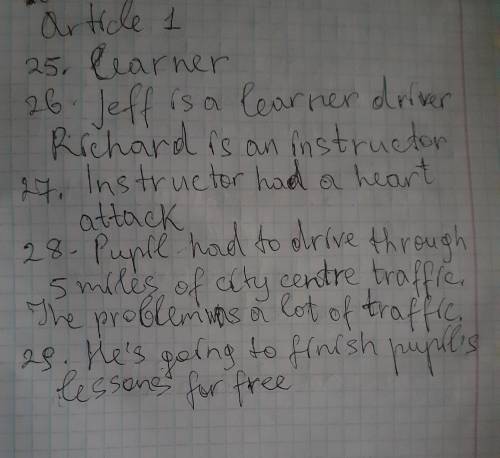 Article 1
25. learner
26. Jeff is a learner driver
Richard is an instructor
27. Instructor had a heart
attack
28 - Pupil had to drive through
5 miles of city centre traffic.
The problem was a lot of traffic.
29. He's going to finish pupil's
lessons for free